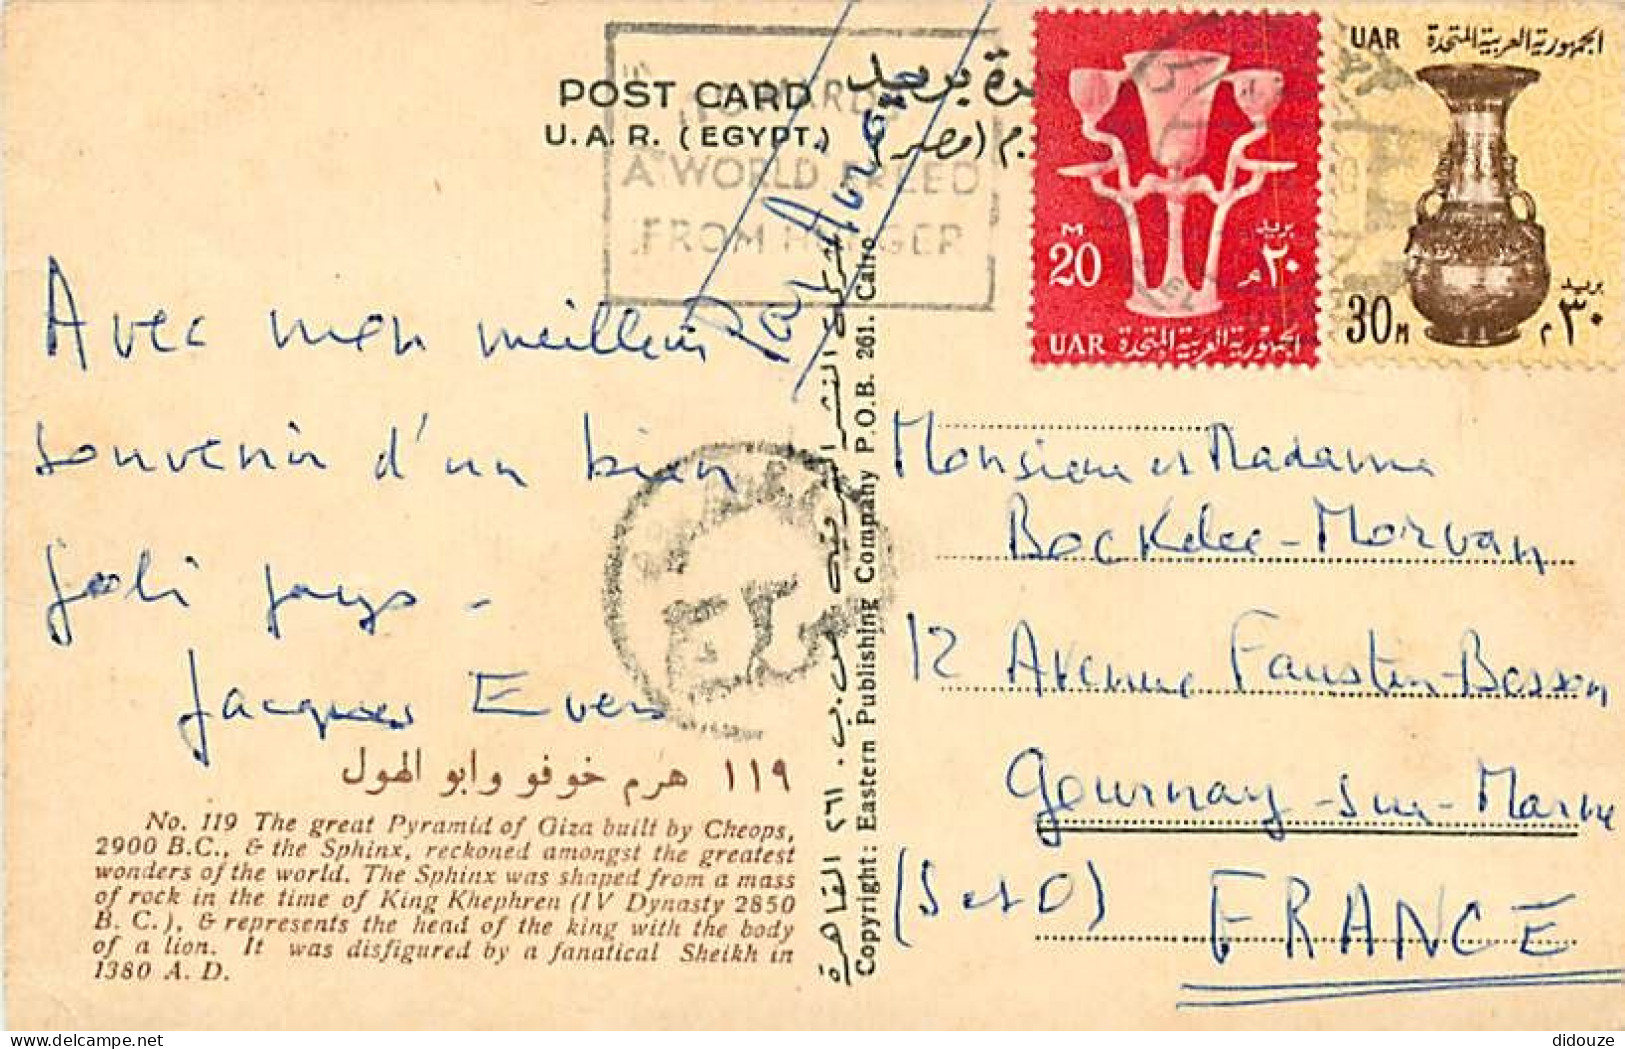 POST CARD
U.A.R. (EGYPT.)
بريد
(مصر)
TOWARDS
A WORLD FREED
FROM HUNGER
Par Avion
M
20
بريد
٢٠ م
UAR الجمهورية العربية المتحدة
UAR الجمهورية العربية المتحدة
30 M
بريد
٣٠ م
Avec mon meilleur
souvenir d'un bien
joli pays -
Jacques Evers
Monsieur et Madame
Bockelee-Morvan
12 Avenue Faustin-Besson
Gournay-sur-Marne
(S et O)
FRANCE
١١٩ هرم خوفو وابو الهول
No. 119 The great Pyramid of Giza built by Cheops,
2900 B.C., & the Sphinx, reckoned amongst the greatest
wonders of the world. The Sphinx was shaped from a mass
of rock in the time of King Khephren (IV Dynasty 2850
B. C.), & represents the head of the king with the body
of a lion. It was disfigured by a fanatical Sheikh in
1380 A. D.
Copyright: Eastern Publishing Company P.O.B. 261. Cairo
ص.ب. ٢٦١ القاهرة
delcampe.net
didouze